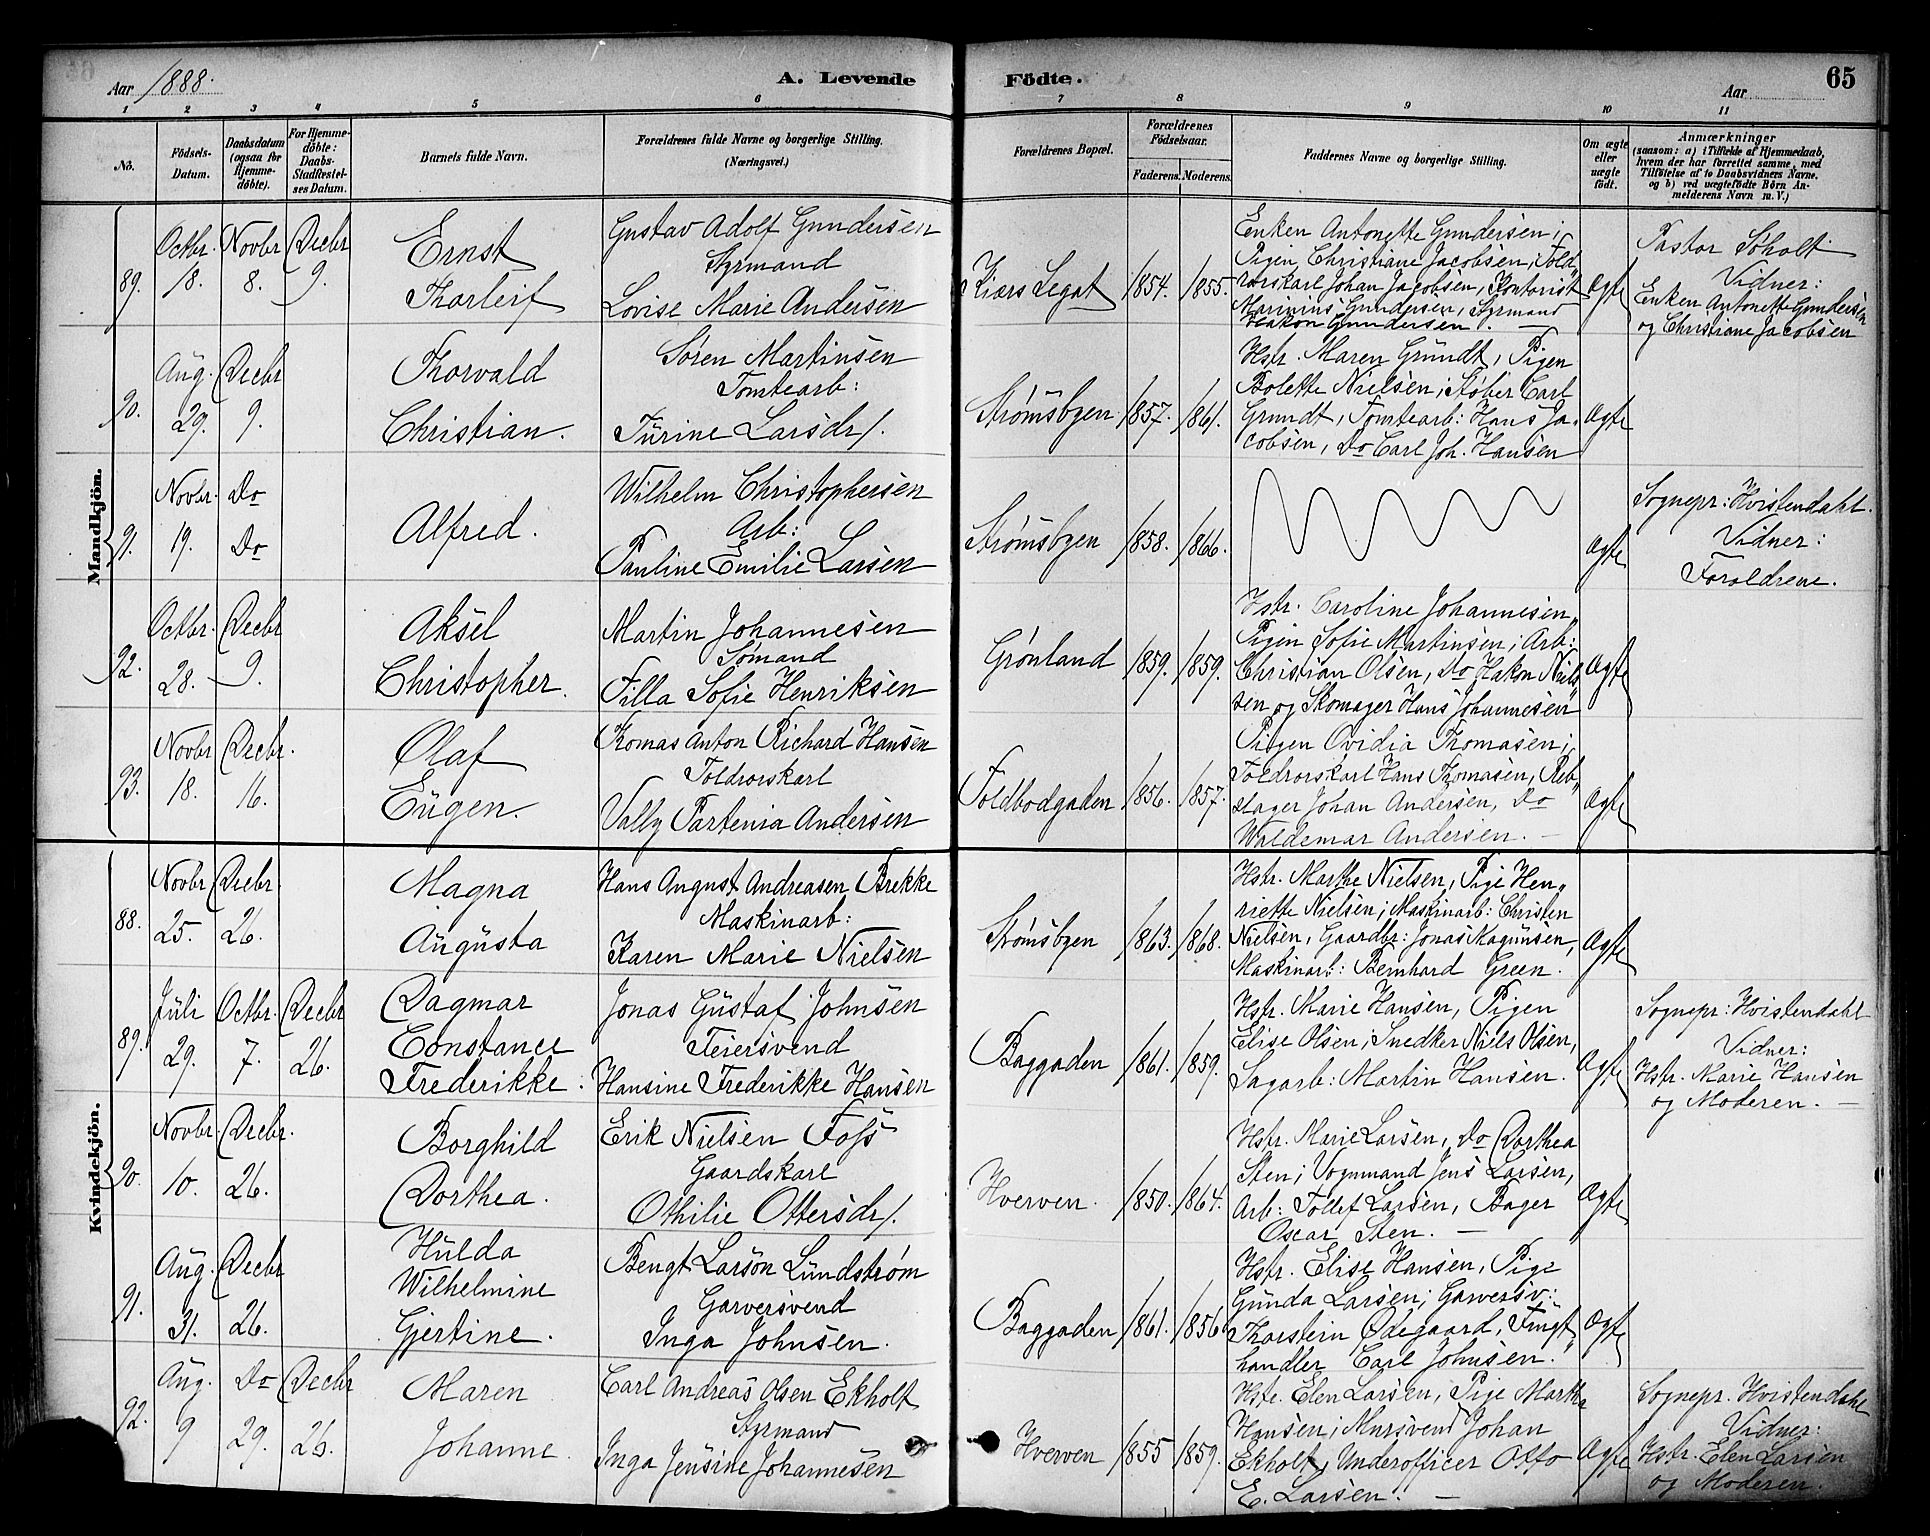 Aar 1888. A. Levende Födte. Aar 65
1 2 3 4 5 6 7 8 9 10 11
No. Födsels-Datum. Daabsdatum (ogsaa for Hjemme-döbte). For Hjemme-döbte: Daabs-Stadfæstel-ses Datum. Barnets fulde Navn. Forældrenes fulde Navne og borgerlige Stilling. (Næringsvei.) Forældrenes Bopæl. Forældrenes Födselsaar. Faderens. Moderens. Faddernes Navne og borgerlige Stilling. Om ægte eller uægte födt. Anmærkninger (saasom: a) i Tilfælde af Hjemmedaab, hvem der har forrettet samme, med Tilföielse af to Daabsvidners Navne, og b) ved uægtefödte Börn An-melderens Navn m. V.)
Mandkjön.
89. Octbr. 18. Novbr 8. Decbr 9.
Ernst
Thorleif
Gustav Adolf Gundersen
Styrmand
Lovise Marie Andersen
Kiærs Legat 1854. 1855.
Enken Antonette Gundersen;
Pigen Christiane Jacobsen; Told„
rorskarl Johan Jacobsen, Kontorist
Marinius Gundersen, Styrmand
Hakon Gundersen. —
Ægte
Pastor Søholt
Vidner:
Enken Antonette Gundersen
og Christiane Jacobsen
90. Aug. 29. Decbr 9.
Thorvald
Christian.
Søren Martinsen
Tomtearb:
Turine Larsdr/.
Strømsbyen 1857. 1861.
Hstr. Maren Grundt, Pigen
Bolette Nielsen; Støber Carl
Grundt, Tomtearb: Hans Ja„
cobsen, Do Carl Joh. Hansen
Ægte
91. Novbr. 19. Do Do
Alfred.
Wilhelm Christophersen
Arb:
Pauline Emilie Larsen
Strømsbyen 1858. 1866.
Ægte
Sognepr: Hvistendahl.
Vidner:
Forældrene.
92. Octbr. 28. Decbr 9.
Aksel
Christopher.
Martin Johannesen
Sømand
Tilla Sofie Henriksen
Grønland 1859. 1859.
Hstr. Caroline Johannesen„
Pigen Sofie Martinsen; Arb:
Christian Olsen, Do Hakon Niel„
sen og Skomager Hans Johannesen
Ægte
93. Novbr 18. Decbr. 16.
Olaf
Eugen.
Tomas Anton Richard Hansen
Toldrorskarl
Vally Partenia Andersen
Toldbodgaden 1856. 1857.
Pigen Ovidia Tomasen;
Toldrorskarl Hans Tomasen, Reb„
slager Johan Andersen, Do
Waldemar Andersen. —
Ægte
Kvindekjön.
88. Novbr 25. Decbr. 26.
Magna
Augusta
Hans August Andreasen Brekke
Maskinarb:
Karen Marie Nielsen
Strømsbyen 1863. 1868.
Hstr. Marthe Nielsen, Pige Hen„
riette Nielsen; Maskinarb: Christen
Nielsen, Gaardbr: Jonas Magunsen,
Maskinarb: Bernhard Green.
Ægte
89. Juli 29. Octbr. 7. Decbr 26.
Dagmar
Constance
Frederikke.
Jonas Gustaf Johnsen
Feiersvend
Hansine Frederikke Hansen
Baggaden 1861. 1859.
Hstr. Marie Hansen, Pigen
Elise Olsen; Snedker Niels Olsen,
Sagarb: Martin Hansen.
Ægte
Sognepr: Hvistendahl
Vidner:
Hstr. Marie Hansen
og Moderen. —
90. Novbr 10. Decbr. 26.
Borghild
Dorthea.
Erik Nielsen Foss
Gaardskarl
Othilie Ottersdr/.
Hverven. 1850. 1864.
Hstr. Marie Larsen, Do Dorthea
Sten; Vognmand Jens Larsen,
Arb: Tollef Larsen, Bager
Oscar Sten. —
Ægte
91. Aug. 31. Decbr 26.
Hulda
Wilhelmine
Gjertine.
Bengt Larson Lundstrøm
Garversvend
Inga Johnsen.
Baggaden 1861. 1856.
Hstr. Elise Hansen, Pige
Gunda Larsen; Garversv:
Thorstein Ødegaard, Fingt„
handler Carl Johnsen.
Ægte
92. Aug. 9 Do 29. Decbr 26.
Maren
Johanne.
Carl Andreas Olsen Ekholt
Styrmand
Inga Jensine Johannesen
Hverven 1855 1859.
Hstr. Elen Larsen, Pige Marthe
Hansen; Mursvend Johan
Ekholt, Underofficer Otto
E. Larsen. —
Ægte
Sognepr. Hvistendahl
Vidner:
Hstr. Elen Larsen
og Moderen.